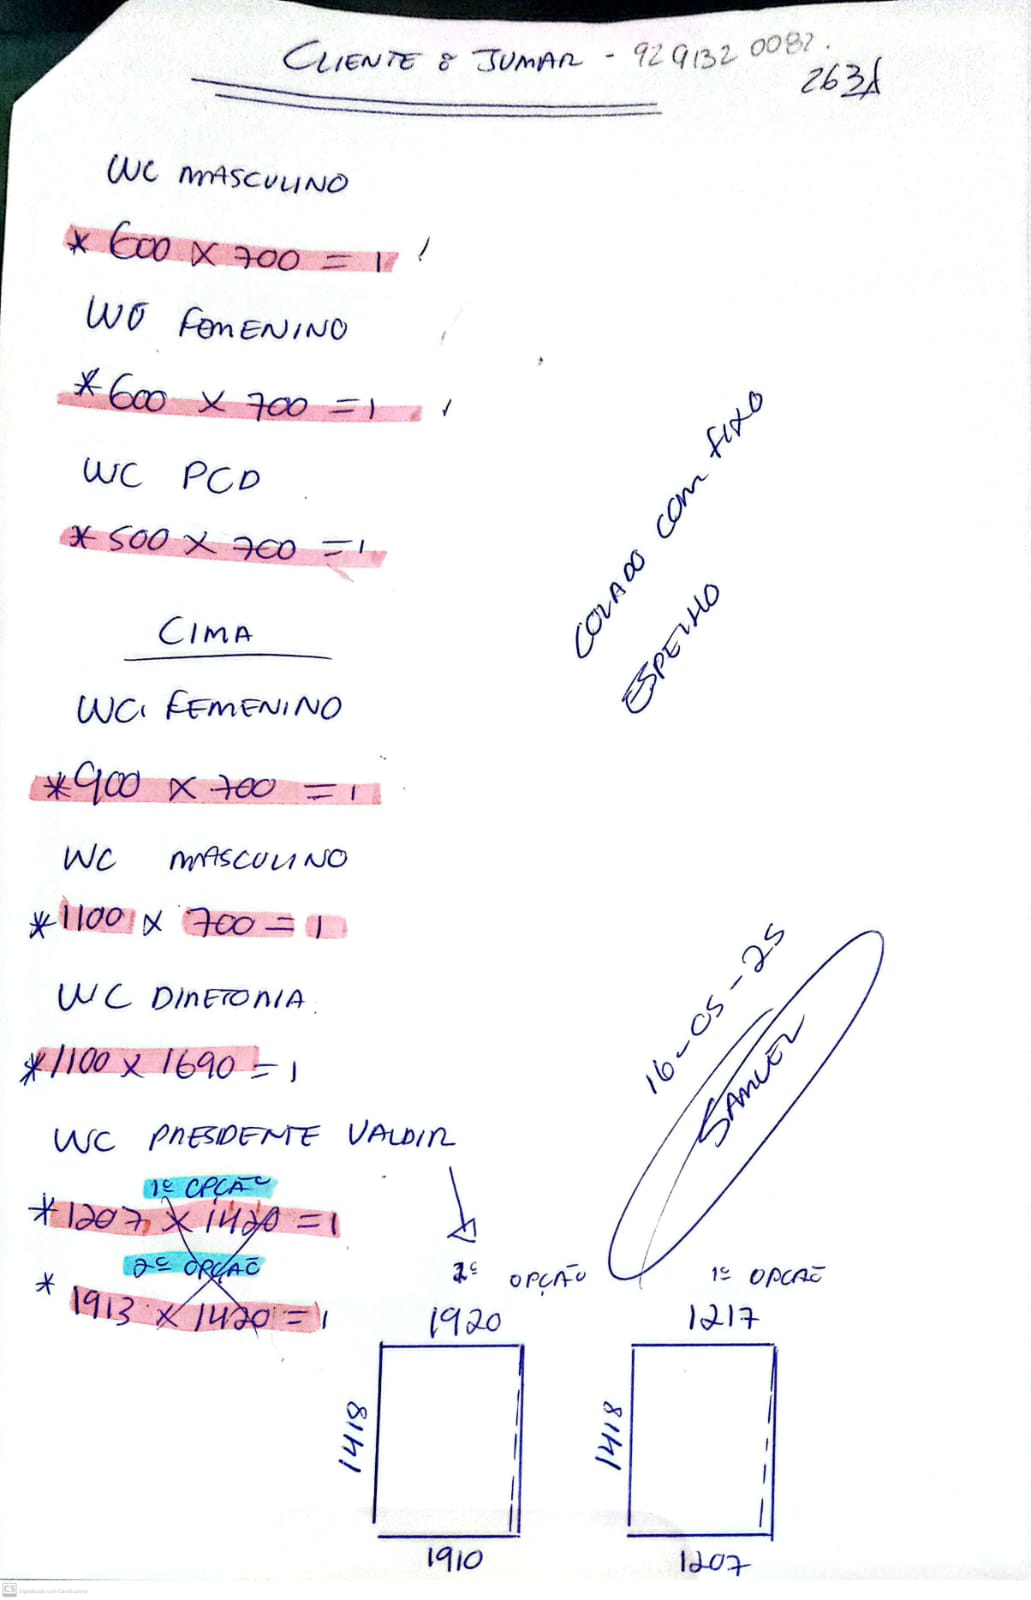 CLIENTE : JUMAR - 929132 0082.
263A
WC MASCULINO
* 600 X 700 = 1
WC FEMENINO
* 600 X 700 = 1
WC PCD
* 500 X 700 = 1
COLADO COM FIXO
ESPELHO
CIMA
WC FEMENINO
* 900 X 700 = 1
WC MASCULINO
* 1100 X 700 = 1
WC DIRETORIA
* 1100 X 1690 = 1
16-05-25
SAMUEL
WC PRESIDENTE VALDIR
1º OPÇÃO
* 1207 X 1420 = 1
2º OPÇÃO
* 1913 X 1420 = 1
2º OPÇÃO
1920
1418
1910
1º OPCAÕ
1217
1418
1207
CS Digitalizado com CamScanner